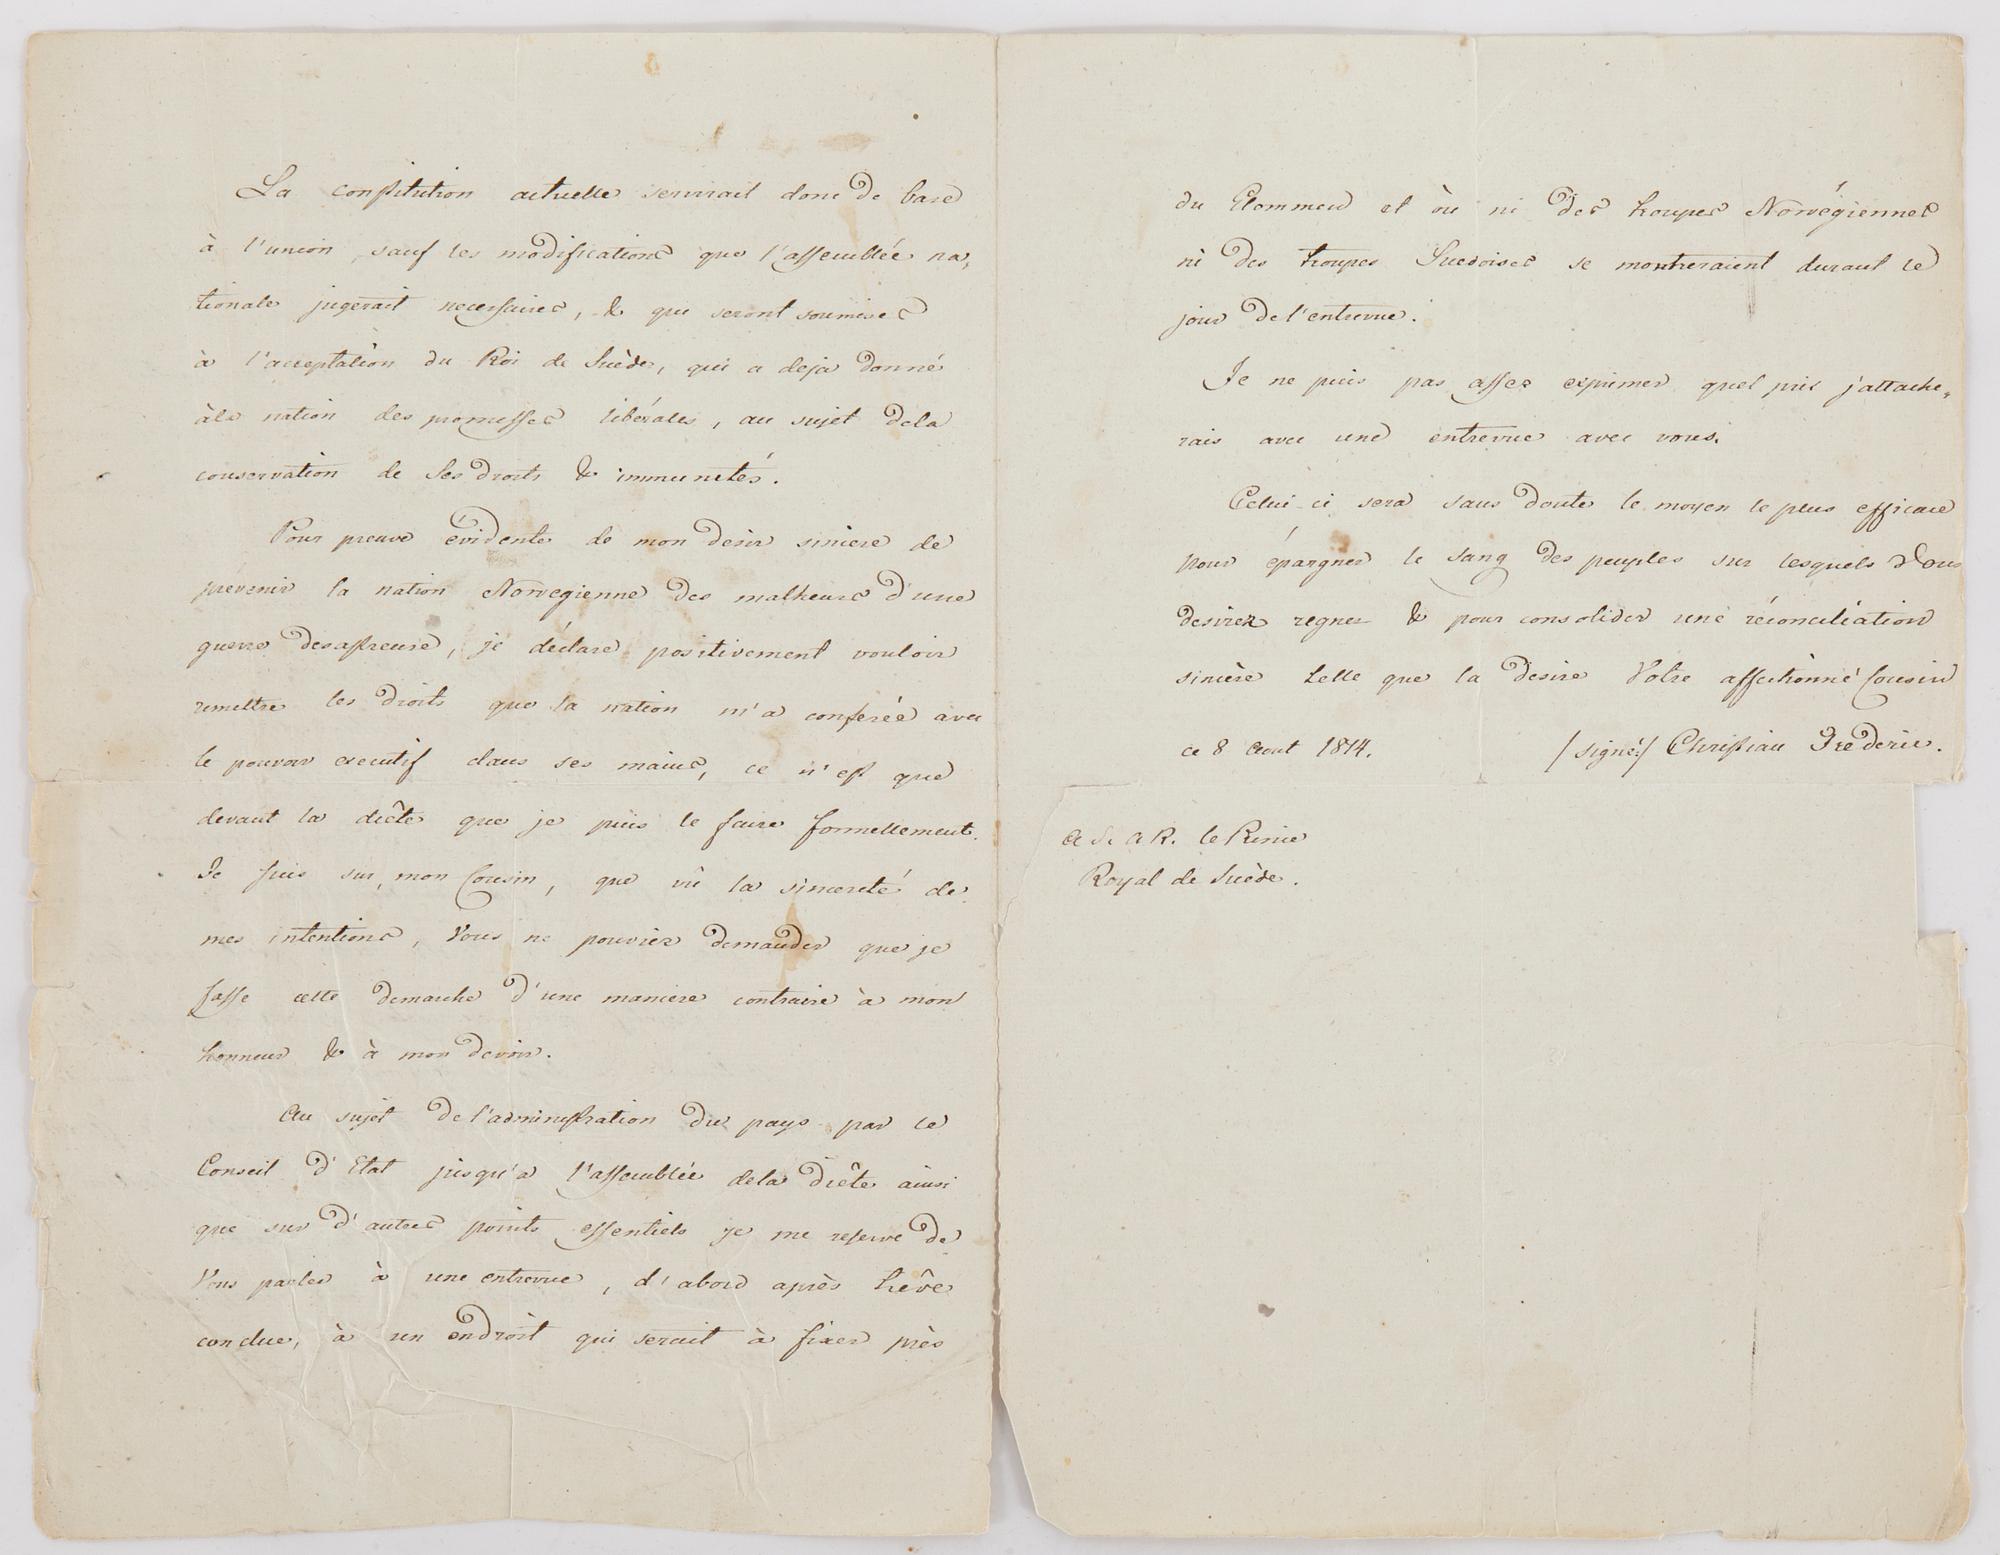 La constitution actuelle servirait donc de base
à l'union, sauf les modifications que l'assemblée na,
tionale jugerait necessaires, & que seront soumises
à l'acceptation du Roi de Suède, qui a deja donné
à la nation des promesses libérales, au sujet de la
conservation de Ses droits & immunités.
Pour preuve évidente de mon desir sincere de
prevenir la nation Norvegienne des malheurs d'une
guerre desastreuse, je déclare positivement vouloir
remettre les droits que la nation m'a conferée avec
le pouvoir executif dans ses mains, ce n'est que
devant la diête que je puis le faire formellement.
Je suis sur, mon Cousin, que vû la sincerité de
mes intentions, Vous ne pouvriez demander que je
fasse cette demarche d'une maniere contraire à mon
honneur & à mon devoir.
Au sujet de l'administration du pays par le
Conseil d'Etat jusqu'a l'assemblée de la diête ainsi
que sur d'autres points essentiels je me reserve de
Vous parler à une entrevue, d'abord après trêve
conclue, à un endroit qui serait à fixer près
du Glommen et où ni des troupes Norvégiennes
ni des troupes Suedoises se montreraient durant le
jour de l'entrevue.
Je ne puis pas assez exprimer quel prix j'attache,
rais avec une entrevue avec vous.
Celui ci sera sans doute le moyen le plus efficace
pour épargner le sang des peuples sur lesquels Vous
desirez regner & pour consolider une réconciliation
sincère telle que la desire Votre affectionné Cousin
ce 8 Aout 1814. /signé/ Christian Frederic.
A S. A R. le Prince
Royal de Suède.